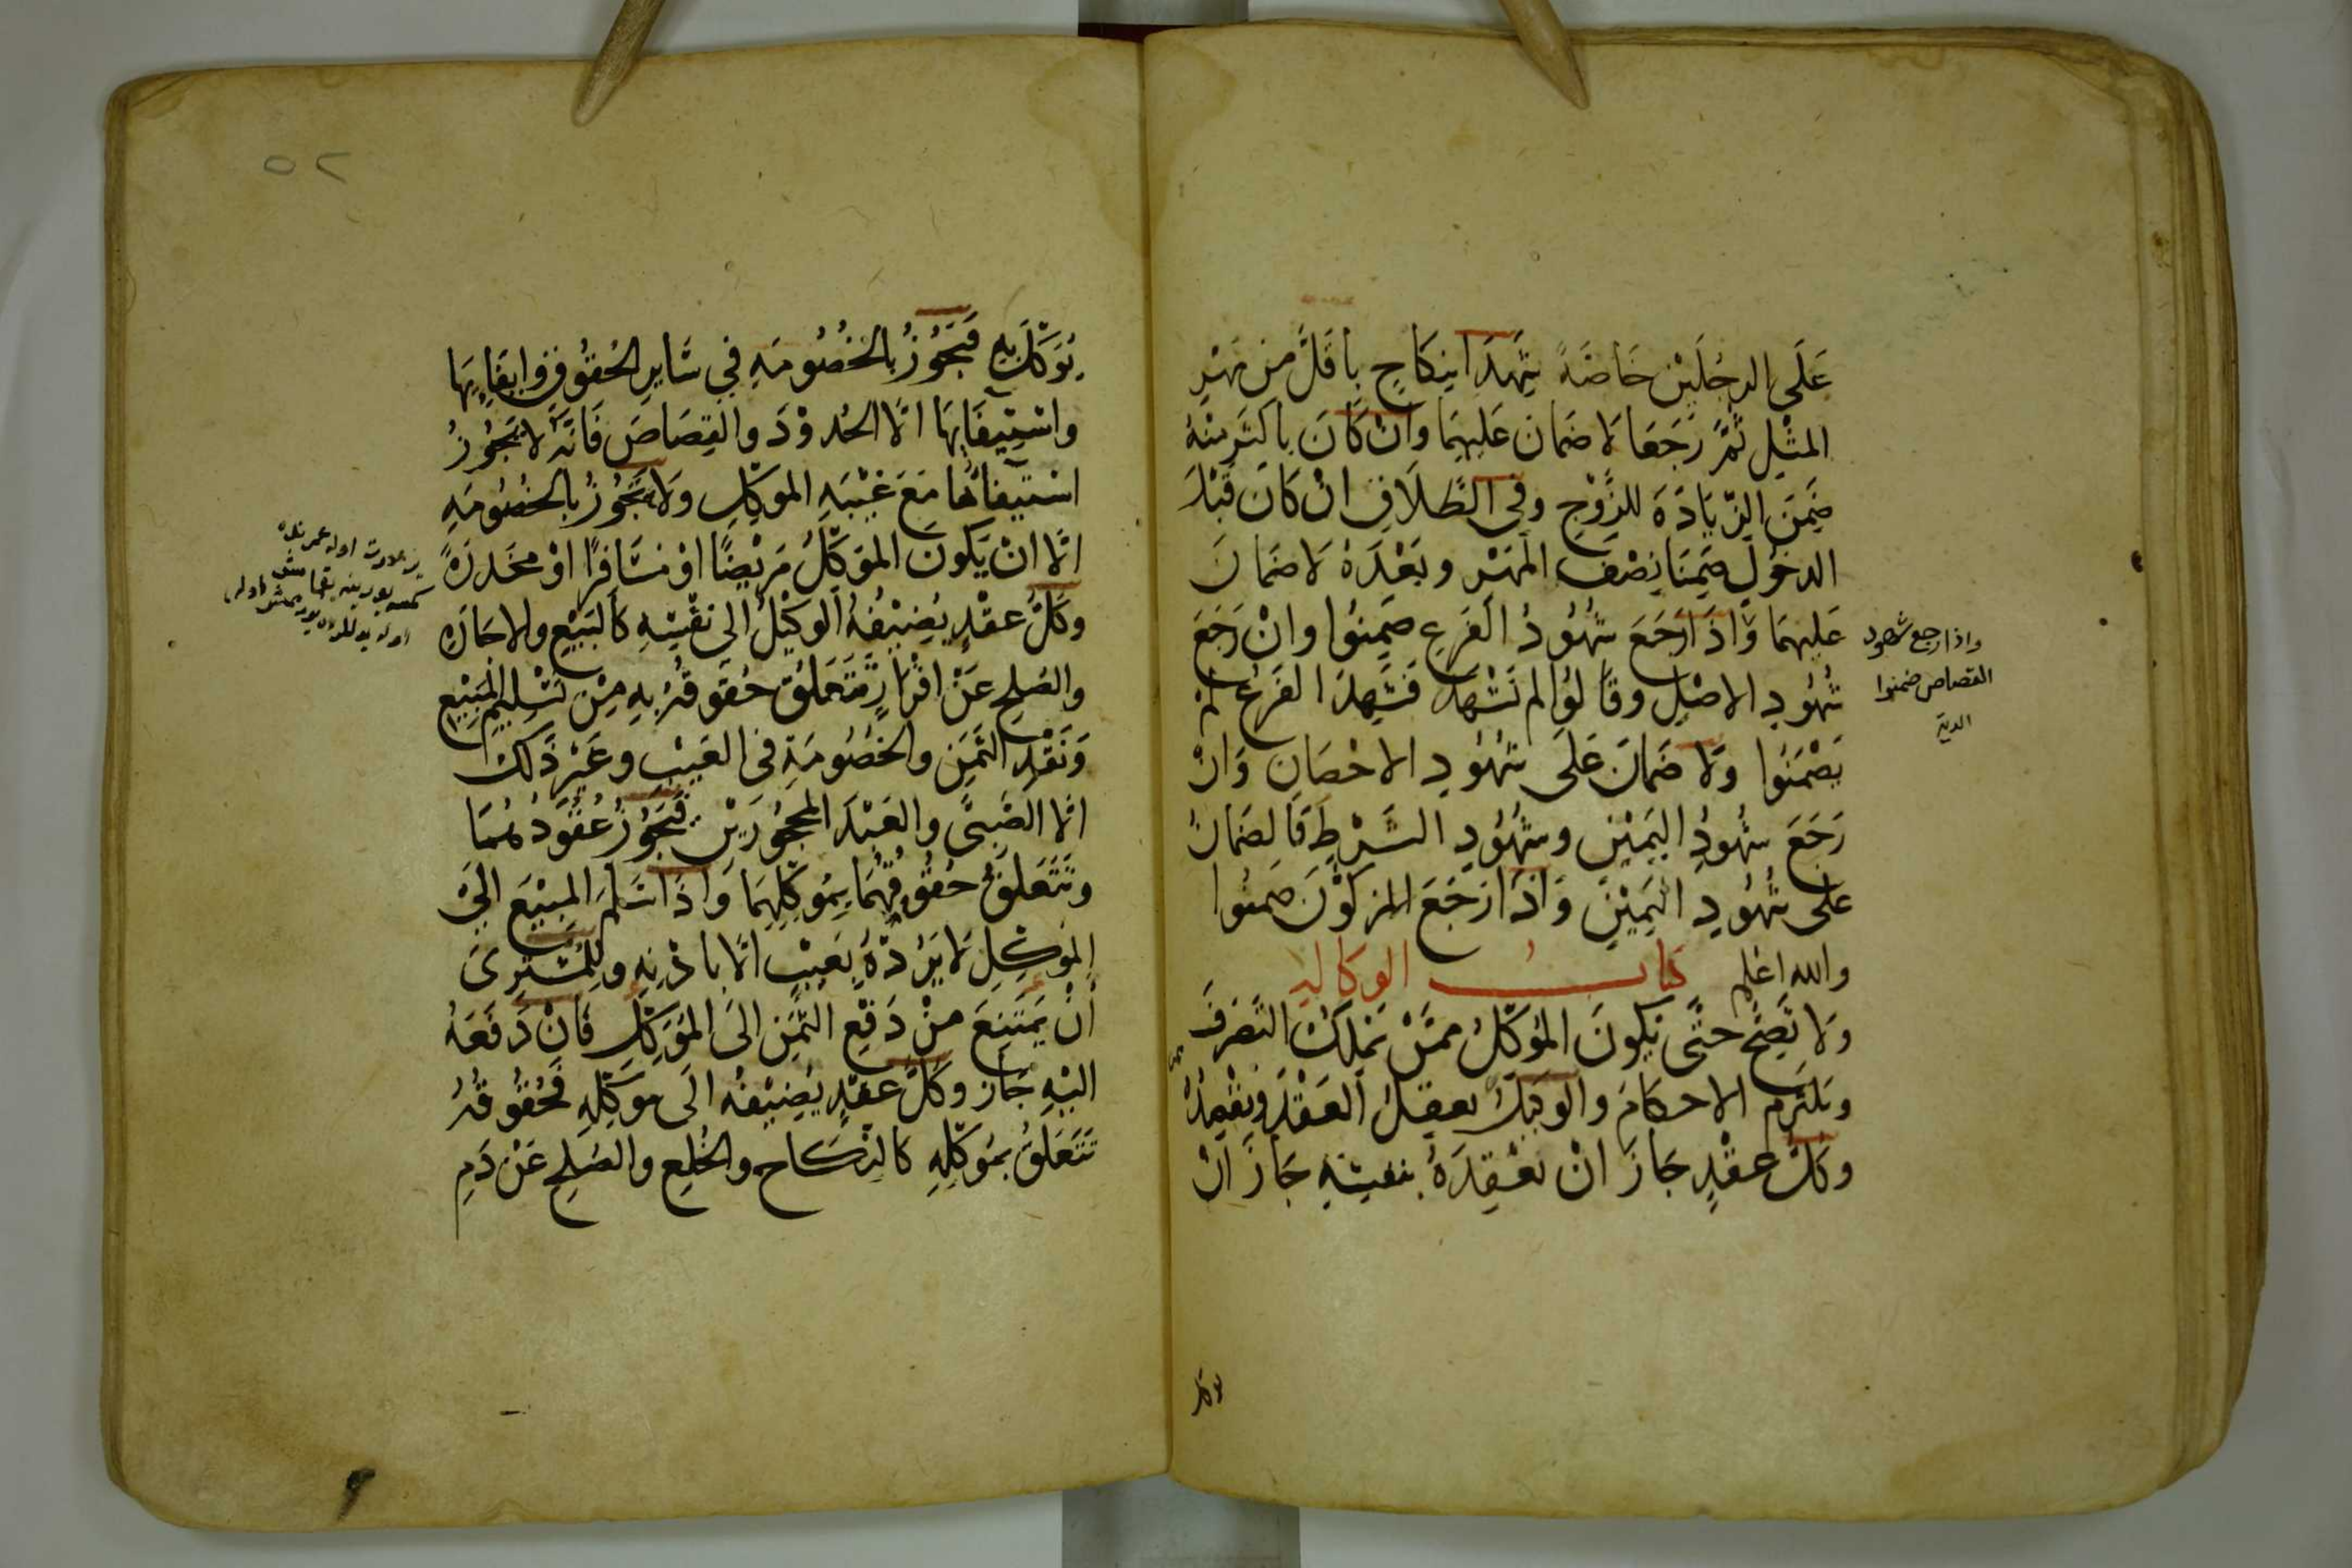 عَلَى الرجُلَيْن خَاصَّةً شَهِدَا بنِكَاحٍ بِاَقَلَّ من مَهْرِ
المثْلِ ثُمَّ رَجَعَا لَا ضَمان عَلَيهِمَا وَانْ كَانَ باكثَر مِنْهُ
ضَمِنَ الزِّيَادَةَ للزَّوْجِ وفى الطَّلَاقِ انْ كَانَ قَبْلَ
الدخُولِ ضَمِنَا نِصْفَ المَهْر وبَعْدَهُ لَا ضمَانَ
عَلَيهِمَا وَاذَا رَجَعَ شُهُودُ الفَرعِ ضَمِنُوا وانْ رَجَعَ
شُهُودِ الاصْلِ وقَالُوا لم نَشْهَدْ فَشَهِدَ الفَرعُ لم
يَضْمَنُوا وَلَا ضَمَانَ عَلَى شهُودِ الاحْصَانِ وَانْ
رَجَعَ شهُودُ اليَمِيْنِ وشهُودِ الشَرْطِ فَالضَمَانُ
على شُهُودِ اليَمِيْنِ وَاذَا رَجَعَ المزكوْنَ ضَمنُوا
والله اعلم كتابُ الوكالة
ولَا تَصِحُّ حتَّى يَكونَ المُوكّلُ ممّنْ يَملكُ التَّصَرفَ
ويَلتَزم الاحكامَ والوكيلُ يعقلُ العَقْدَ ويقْصِدُهُ
وكلُّ عقْدٍ جَازَ انْ يعْقِدَهُ بنفسِهِ جَازَ انْ
يوكل
واذا رجع شهود
القصاص ضمنوا
الدية
٥٢
يُوَكّلَ بِهِ فَيَجُوْزُ بالخُصُومَةِ فِي سَايرِ الحُقُوقِ وايفَايِهَا
واسْتِيفَايهَا الَّا الحُدوْدَ والقِصَاصَ فَانَّهُ لا يَجُوْزُ
اسْتيفائُها مَعَ غَيْبَةِ الموكّلِ ولَا يَجُوْزُ بالخُصُومَةِ
الَّا انْ يَكونَ الموَكّلُ مَرِيْضًا اوْ مُسَافرًا اوْ مخَدرَةً
وكَلُّ عقْدٍ يُضِيْفُهُ الوَكيْلُ الى نَفْسِهِ كَالبَيْعِ والاجَارَةِ
والصُلحِ عَنْ اقْرَارٍ تَتَعَلقُ حُقوقُهُ بِهِ مِنْ تَسْلِيمِ المَبِيْعِ
وَنَقْدِ الثَّمَنِ والخُصُومَةِ فى العَيْبِ وغَيْرِ ذَلكَ
الَّا الصَّبِىَّ والعَبْدَ المحجُوْرَيْنِ فَيَجُوْزُ عُقُوْدُهُمَا
وتَتَعَلقُ حُقُوقُهُمَا بِمُوَكّلِهِمَا وَاذَا سَلَّمَ المَبِيْعَ الىَ
المَوكّلِ لَا يَرُدُّهُ بعَيْبٍ الَّا باذْنِهِ وللمُشتَرِى
أنْ يَمتَنِعَ منْ دَفْعِ الثَّمَنِ الىَ المُوَكّلِ فَانْ دَفَعَهُ
اليْهِ جَاز وكَلُّ عقْدٍ يُضِيْفهُ الَى مُوَكّلِهِ فَحُقُوقُهُ
تَتَعَلَقُ بمُوَكّلِهِ كَالنكَاح والخُلعِ والصُلحِ عَنْ دَمِ